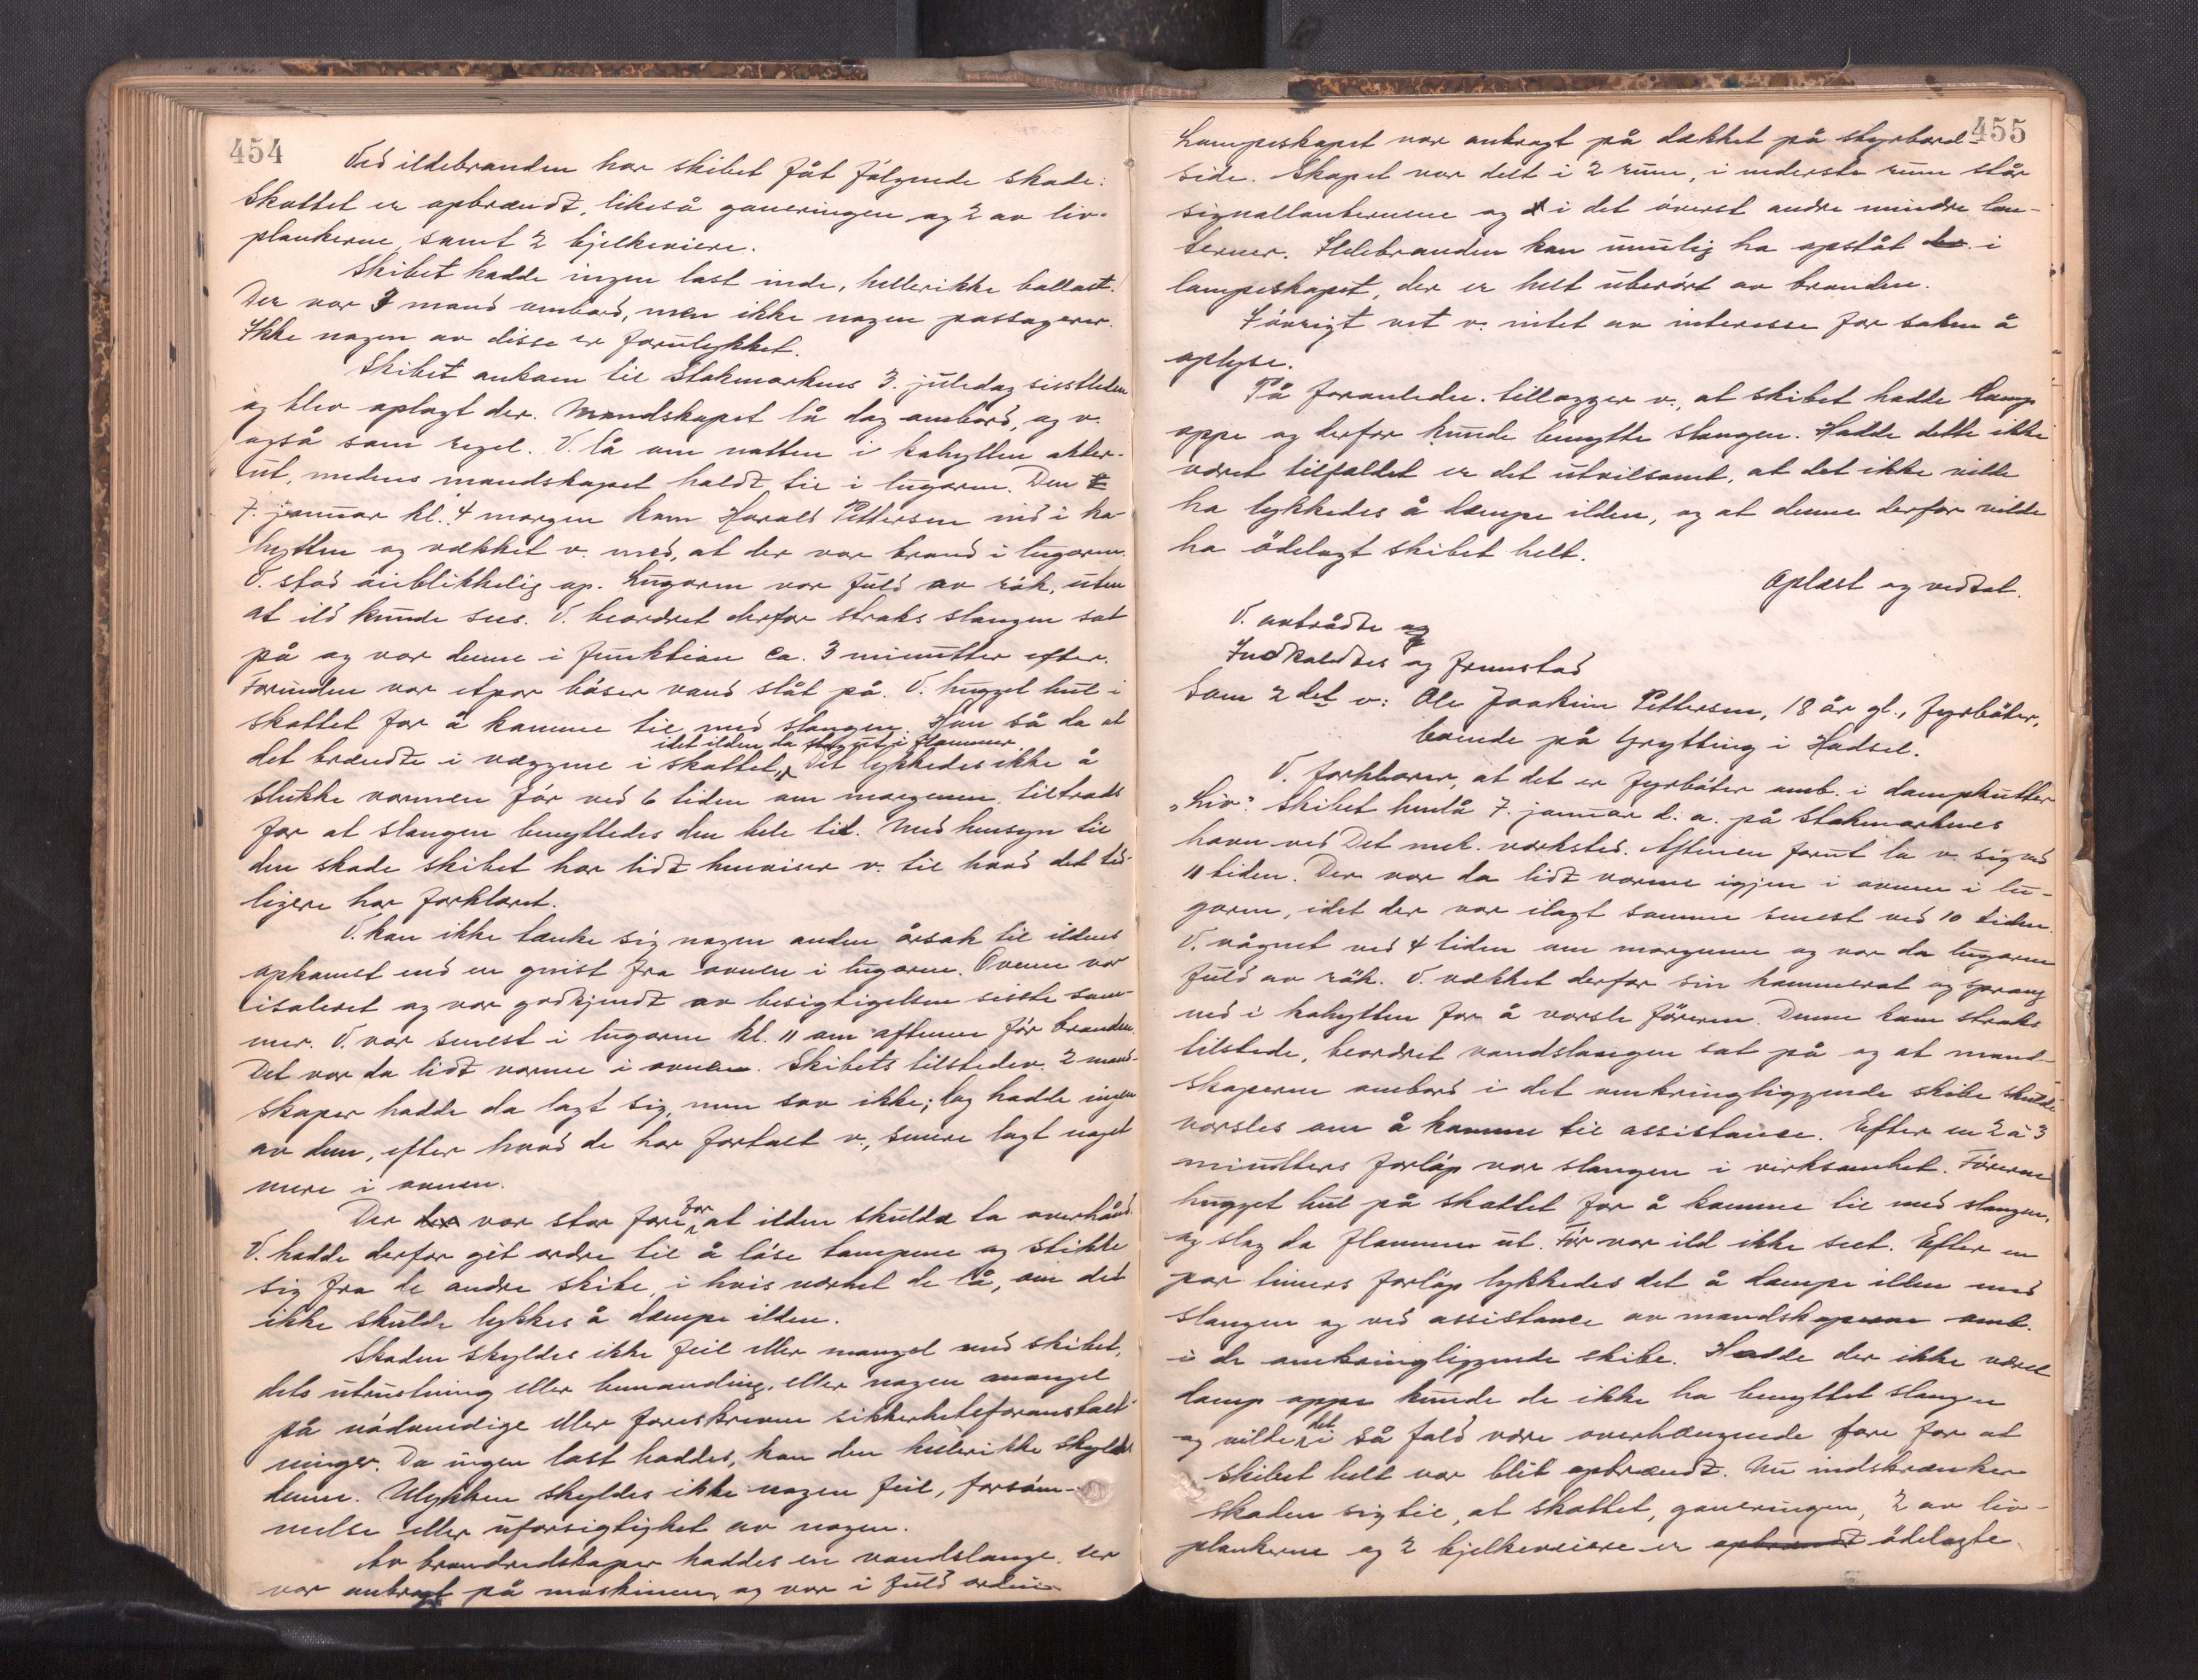 454
Ved ildebranden har skibet fåt følgende skade:
Skottet er opbrændt, likeså garneringen og 2 av liv-
plankerne, samt 2 bjelkeveiere.
Skibet hadde ingen last inde, hellerikke ballast.
Der var 7 mand ombord, men ikke nogen passagerer.
Ikke nogen av disse er forulykket.
Skibet ankom til Stokmarknes 3. juledag sisstleden
og blev oplagt der. Mandskapet lå dog ombord, og v.
også som regel. V. lå om natten i kahytten akter-
ut, medens mandskapet holdt til i lugaren. Den
7. januar kl. 4 morgen kom Harald Pettersen ned i ka-
hytten og vækket v. med, at der var brand i lugaren.
V. stod øieblikkelig op. Lugaren var fuld av røk, uten
at ild kunde sees. V. beordret derfor straks slangen sat
på og var denne i funktion ca. 3 minutter efter.
Forinden var etpar bøser vand slåt på. V. hugget hul i
skottet for å komme til med slangen. Han så da at
idet ilden da slog ut i flammer.
det brændte i væggene i skottet, Det lykkedes ikke å
slukke varmen før ved 6 tiden om morgenen, tiltrods
for at slangen benyttedes den hele tid. Med hensyn til
den skade skibet har lidt henviser v. til hvad det tid-
ligere har forklaret.
V. kan ikke tænke sig nogen anden årsak til ildens
opkomst end en gnist fra ovnen i lugaren. Ovnen var
isoleret og var godkjendt av besigtigelsen sisste som-
mer. V. var senest i lugaren kl. 11 om aftenen før branden.
Det var da lidt varme i ovnen. Skibets tilstedev. 2 mand-
skaper hadde da lagt sig, men sov ikke; log hadde ingen
av dem, efter hvad de har fortalt v., senere lagt noget
mere i ovnen.
Der der var stor fare for at ilden skulde ta overhånd.
V. hadde derfor git ordre til å løse tampene og stikke
sig fra de andre skibe, i hvis nærhet de lå, om det
ikke skulde lykkes å dæmpe ilden.
Skaden skyldes ikke feil eller mangel ved skibet,
dets utrustning eller bemanding, eller nogen mangel
på nødvendige eller foreskrevne sikkerhetsforanstalt-
ninger. Da ingen last haddes, kan den hellerikke skyldes
denne. Ulykken skyldes ikke nogen feil, forsøm-
melse eller uforsigtighet av nogen.
Av brandredskaper haddes en vandslange, der
var anbragt på maskinen og var i fuld orden.
455
Lampeskapet var anbragt på dækket på styrbord-
side. Skapet var delt i 2 rum, i nederste rum står
signallanternene og i det øverst andre mindre lan-
terner. Ildebranden kan umulig ha opståt der i
lampeskapet, der er helt uberørt av branden.
Iøvrigt vet v. intet av interesse for saken å
oplyse.
På foranledn. tillægger v., at skibet hadde damp
oppe og derfor kunde benytte slangen. Hadde dette ikke
været tilfældet er det utvilsomt, at det ikke vilde
ha lykkedes å dæmpe ilden, og at denne derfor vilde
ha ødelagt skibet helt.
Oplæst og vedtat.
V. avtrådte og
Indkaldtes og fremstod
Som 2det v: Ole Joakim Pettersen, 18 år gl., fyrbøter,
boende på Grytting i Hadsel.
V. forklarer, at det er fyrbøter omb. i dampkutter
"Liv". Skibet henlå 7. januar d. a. på Stokmarknes
havn ved Det mek. værksted. Aftenen forut la v. sig ved
11 tiden. Der var da lidt varme igjen i ovnen i lu-
garen, idet der var ilagt samme senest ved 10 tiden.
V. vågnet ved 4 tiden om morgenen og var da lugaren
fuld av røk. V. vækket derfor sin kammerat og sprang
ned i kahytten for å varsle føreren. Denne kom straks
tilstede, beordret vandslangen sat på og at mand-
skaperne ombord i det omkringliggende skibe skulde
varsles om å komme til assistance. Efter en 2 à 3
minutters forløp var slangen i virksomhet. Føreren
hugget hul på skottet for å komme til med slangen,
og slog da flammer ut. Før var ild ikke seet. Efter en
par timers forløp lykkedes det å dæmpe ilden med
slangen og ved assistance av mandskaperne omb.
i de omkringliggende skibe. Hadde der ikke været
damp oppe kunde de ikke ha benyttet slangen
og vilde det i så fald være overhængende fare for at
skibet helt var blit opbrændt. Nu indskrænker
skaden sig til, at skottet, garneringen, 2 av liv-
plankerne og 2 bjelkeveiere er opbrændt ødelagte.